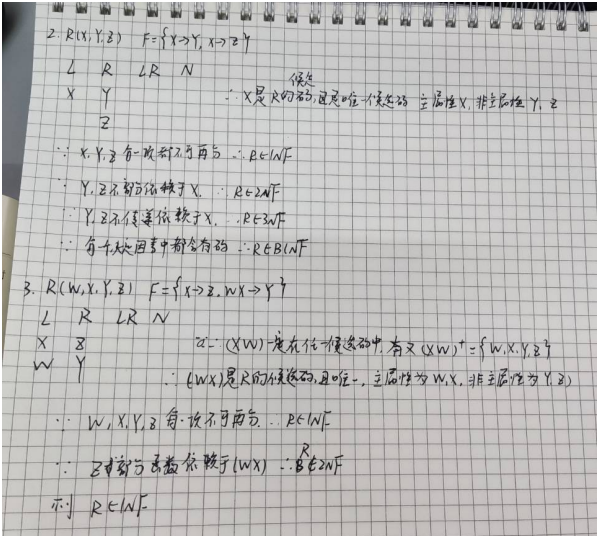 2. R(X,Y,Z) F={X→Y, X→Z}
L R LR N
X Y ∴X是R的码,且是唯一候选码 主属性X,非主属性Y,Z
候选
Z
∵ X,Y,Z每一项都不可再分 ∴R∈1NF
∵ Y,Z不部分依赖于X. ∴R∈2NF
∵ Y,Z不传递依赖于X. ∴R∈3NF
∵ 每个决定因素中都含有码 ∴R∈BCNF
3. R(W,X,Y,Z) F={X→Z, WX→Y}
L R LR N
X Z ∵(XW)一定在任一候选码中,有又(XW)⁺={W,X,Y,Z}
W Y ∴(WX)是R的候选码,且唯一,主属性为W,X,非主属性为Y,Z)
∵ W,X,Y,Z每一项不可再分 ∴R∈1NF
∵ Z部分函数依赖于(WX) ∴R∉2NF
则 R∈1NF